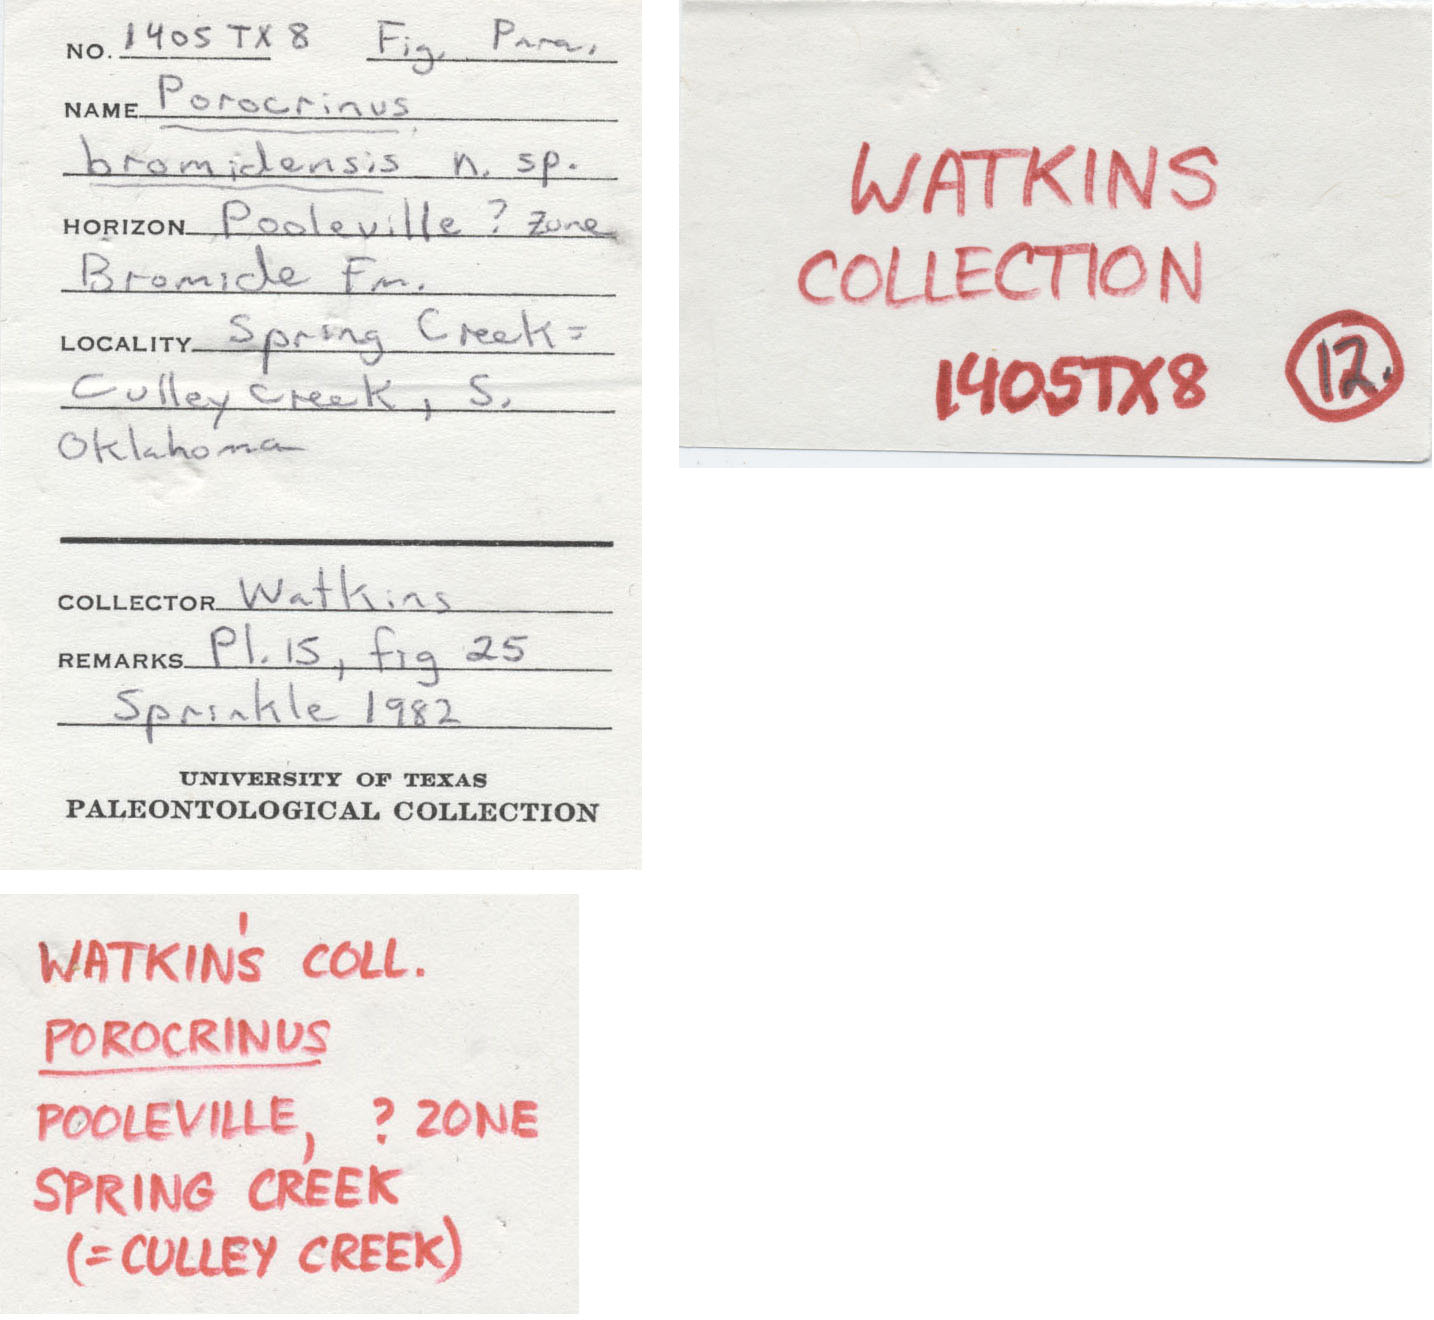 NO. 1405 TX 8 Fig. Para.
NAME Porocrinus
bromidensis n. sp.
HORIZON Pooleville ? Zone
Bromide Fm.
LOCALITY Spring Creek =
Culley Creek, S.
Oklahoma
COLLECTOR Watkins
REMARKS Pl. 15, fig 25
Sprinkle 1982
UNIVERSITY OF TEXAS
PALEONTOLOGICAL COLLECTION
WATKINS
COLLECTION
1405TX8 12.
WATKIN'S COLL.
POROCRINUS
POOLEVILLE, ? ZONE
SPRING CREEK
(=CULLEY CREEK)